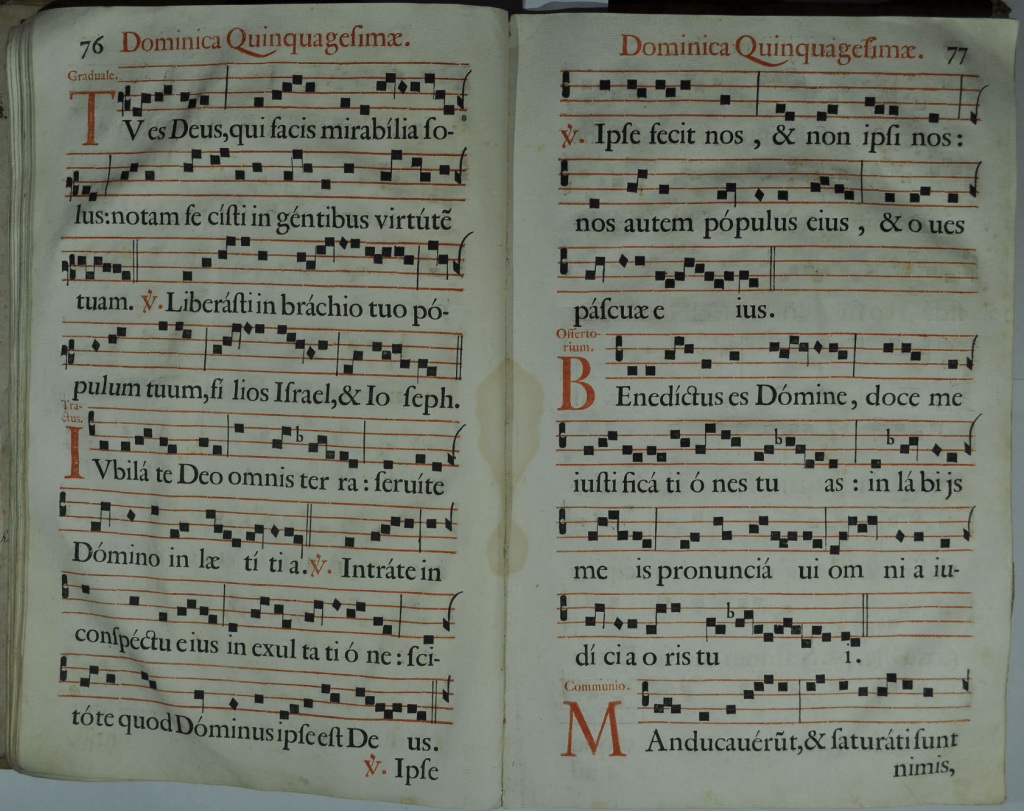 76 Dominica Quinquageſimæ.
Graduale.
TV es Deus, qui facis mirabília ſo-
lus: notam fe cíſti in géntibus virtútẽ
tuam. ℣. Liberáſti in bráchio tuo pó-
pulum tuum, fi lios Iſrael, & Io ſeph.
Tra-
ctus.
IVbilá te Deo omnis ter ra: ſeruíte
Dómino in læ tí ti a. ℣. Intráte in
conſpéctu eius in exul ta ti ó ne: ſci-
tóte quod Dóminus ipſe eſt De us.
℣. Ipſe
Dominica Quinquageſimæ. 77
℣. Ipſe fecit nos, & non ipſi nos:
nos autem pópulus eius, & o ues
páſcuæ e ius.
Offerto-
rium.
BEnedíctus es Dómine, doce me
iuſti ficá ti ó nes tu as: in lá bi js
me is pronunciá ui om ni a iu-
dí ci a o ris tu i.
Communio.
MAnducauérũt, & ſaturáti ſunt
nimis,